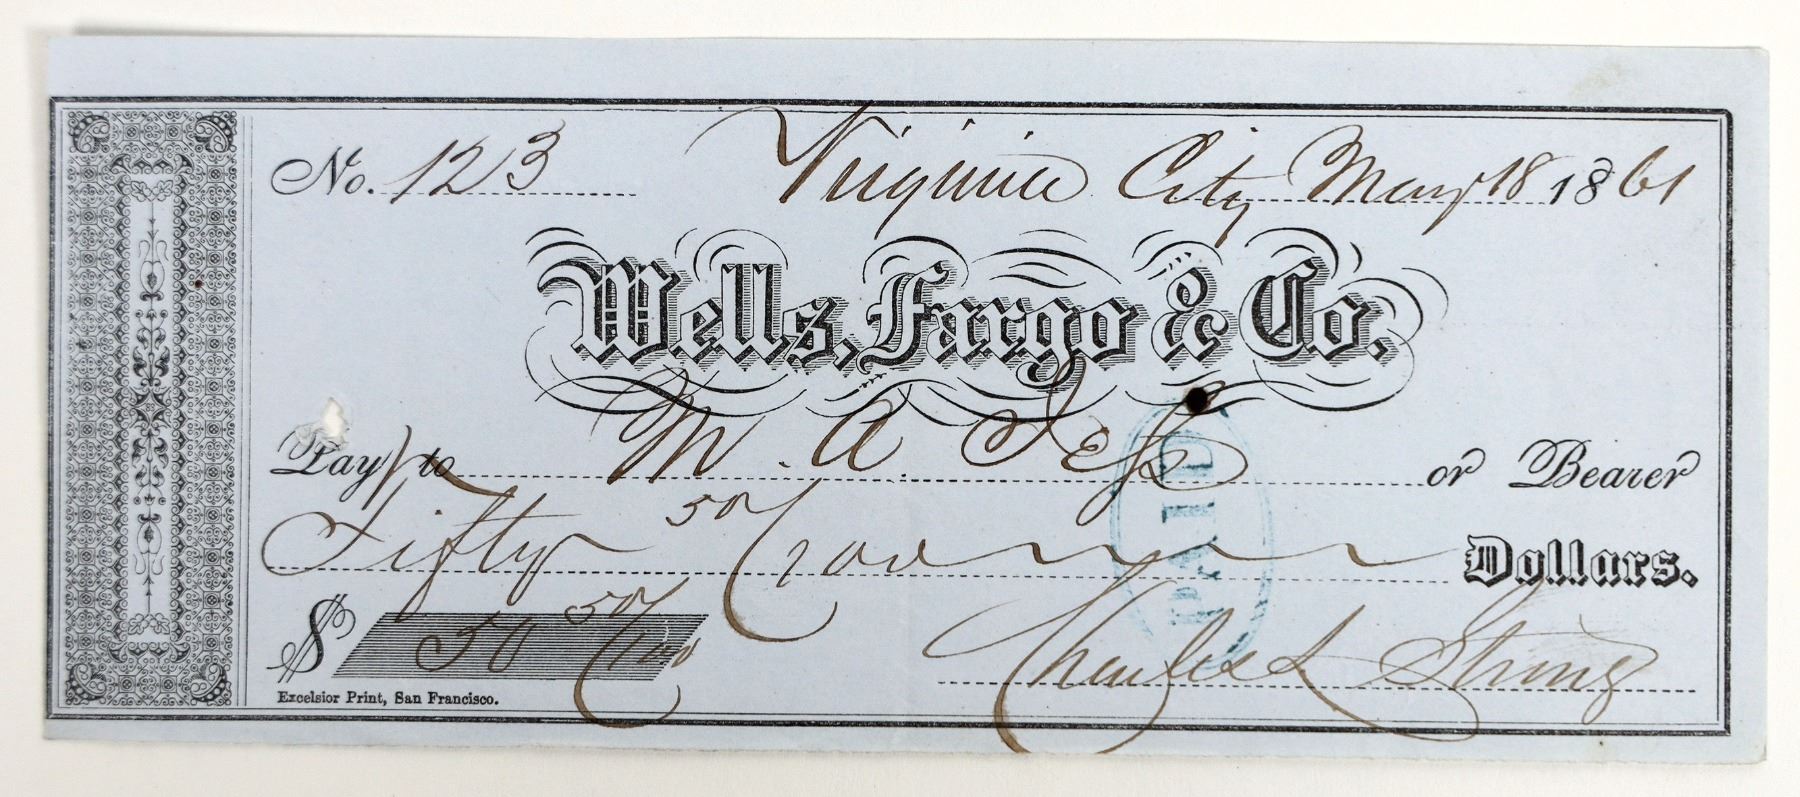 No. 123 Virginia City May 18 1861
Wells, Fargo & Co.
Pay to M. A. or Bearer
Fifty 50/100 Dollars.
PAID
$ 50 50/100 Charles L Strong
Excelsior Print, San Francisco.